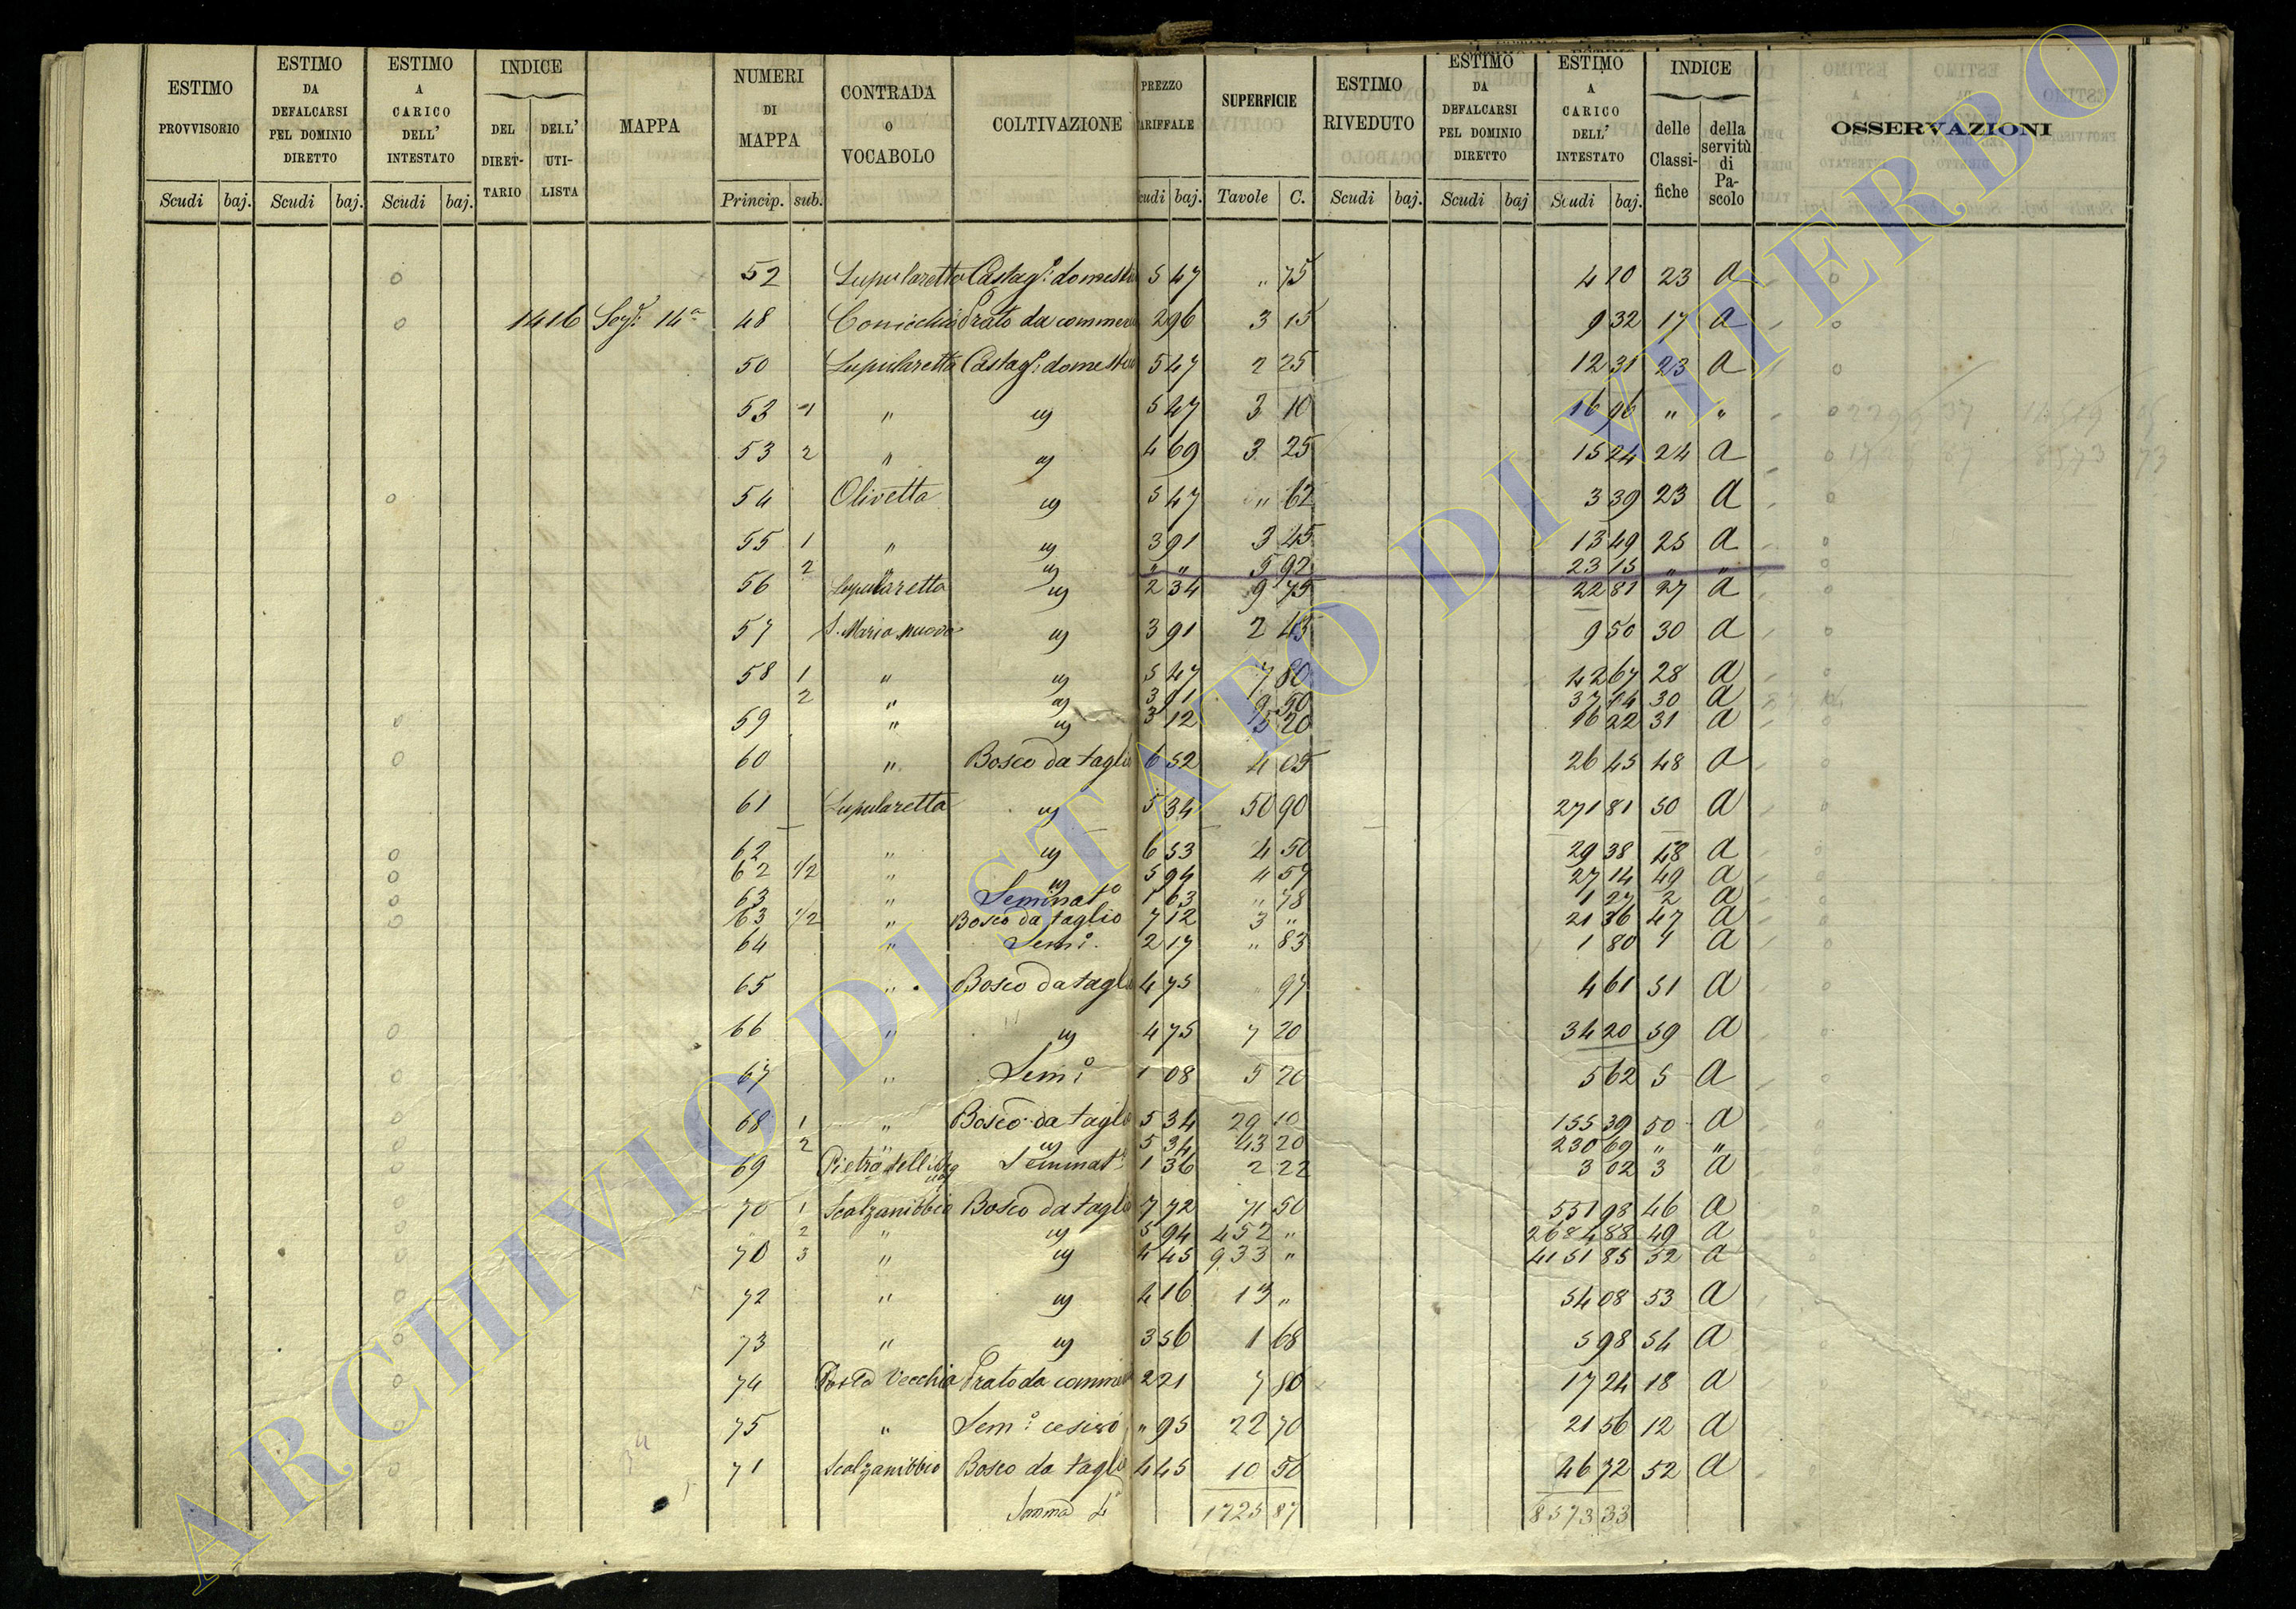 ESTIMO PROVVISORIO | ESTIMO DA DEFALCARSI PEL DOMINIO DIRETTO | ESTIMO A CARICO DELL' INTESTATO | INDICE DEL DIRETTARIO | DELL' UTILISTA | MAPPA | NUMERI DI MAPPA | CONTRADA O VOCABOLO | COLTIVAZIONE | PREZZO ARIFFALE | SUPERFICIE | ESTIMO RIVEDUTO | ESTIMO DA DEFALCARSI PEL DOMINIO DIRETTO | ESTIMO A CARICO DELL' INTESTATO | INDICE delle Classifiche | della servitù di Pascolo | OSSERVAZIONI
Scudi baj. Scudi baj. Scudi baj. Princip. sub. cudi baj. Tavole C. Scudi baj. Scudi baj Scudi baj.
o 52 Lupularetta Castag: domest 5 47 " 75 4 10 23 a o
1416 Sez: 14a o 48 Conicchio Prato da commer 2 96 3 15 9 32 17 a o
50 Lupularetta Castag: domest 5 47 2 25 12 31 23 a o
53 1 " ug 5 47 3 10 16 96 " " o
53 2 " ug 4 69 3 25 15 24 24 a o
o 54 Olivetta ug 5 47 " 62 3 39 23 a o
55 1 " ug 3 91 3 45 13 49 25 a o
2 " ug " " 5 92 23 15 " " o
56 Lupularetta ug 2 34 9 75 22 81 27 a o
57 S. Maria nuova ug 3 91 2 45 9 50 30 a o
58 1 " ug 5 47 7 80 42 67 28 a
2 " ug 3 91 9 50 37 14 30 a
o 59 " ug 3 12 5 20 16 22 31 a o
o 60 " Bosco da taglio 6 52 4 05 26 45 48 a o
61 Lupularetta ug 5 34 50 90 271 81 50 a o
o 62 " ug 6 53 4 50 29 38 48 a o
o 62 1/2 " ug 5 94 4 57 27 14 49 a o
o 63 " Seminato 1 63 " 78 1 27 2 a o
o 63 1/2 " Bosco da taglio 7 12 3 " 21 36 47 a o
64 " Sem:o 2 17 " 83 1 80 7 a o
65 " Bosco da taglio 4 75 " 97 4 61 51 a o
o 66 " ug 4 75 7 20 34 20 59 a o
o 67 " Sem:o 1 08 5 20 5 62 5 a o
o 68 1 " Bosco da taglio 5 34 29 10 155 39 50 a o
o 2 " ug 5 34 43 20 230 69 " " o
o 69 Pietra dell' Seminat: 1 36 2 22 3 02 3 a
o 70 1 Scalzanibbio Bosco da taglio 7 72 71 50 551 98 46 a o
o 2 " ug 5 94 452 " 2684 88 49 a o
o 70 3 " ug 4 45 933 " 4151 85 52 a o
o 72 " ug 4 16 13 " 54 08 53 a
o 73 " ug 3 56 1 68 5 98 54 a
o 74 Posta Vecchia Prato da commer 2 21 7 80 17 24 18 a
o 75 " Sem:o cesivo " 95 22 70 21 56 12 a
o 71 Scalzanibbio Bosco da taglio 4 45 10 50 46 72 52 a
Somma 1725 87 8573 33
ARCHIVIO DI STATO DI VITERBO